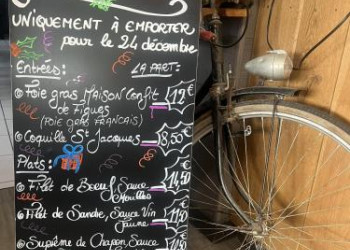 UNIQUEMENT À EMPORTER
pour le 24 décembre
Entrées: LA PART:
Foie gras MAISON Confit 12€
de Figues
(FOIE GRAS FRANCAIS)
Coquille St Jacques 8,50€
Plats:
Filet de Boeuf Sauce 14,50
Morilles
Filet de Sandre, Sauce Vin 11,50
Jaune
Suprême de Chapon, Sauce